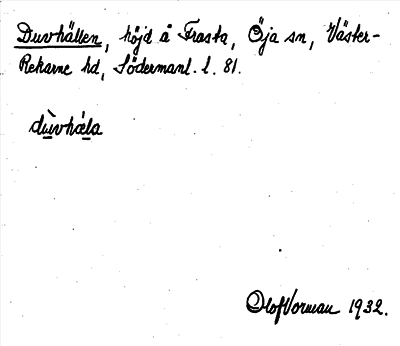 Duvhällen, höjd å Frasta, Öja sn, Väster-
Rekarne hd, Södermanl. l. 81.
dùvhála
Olof Vorman 1932.